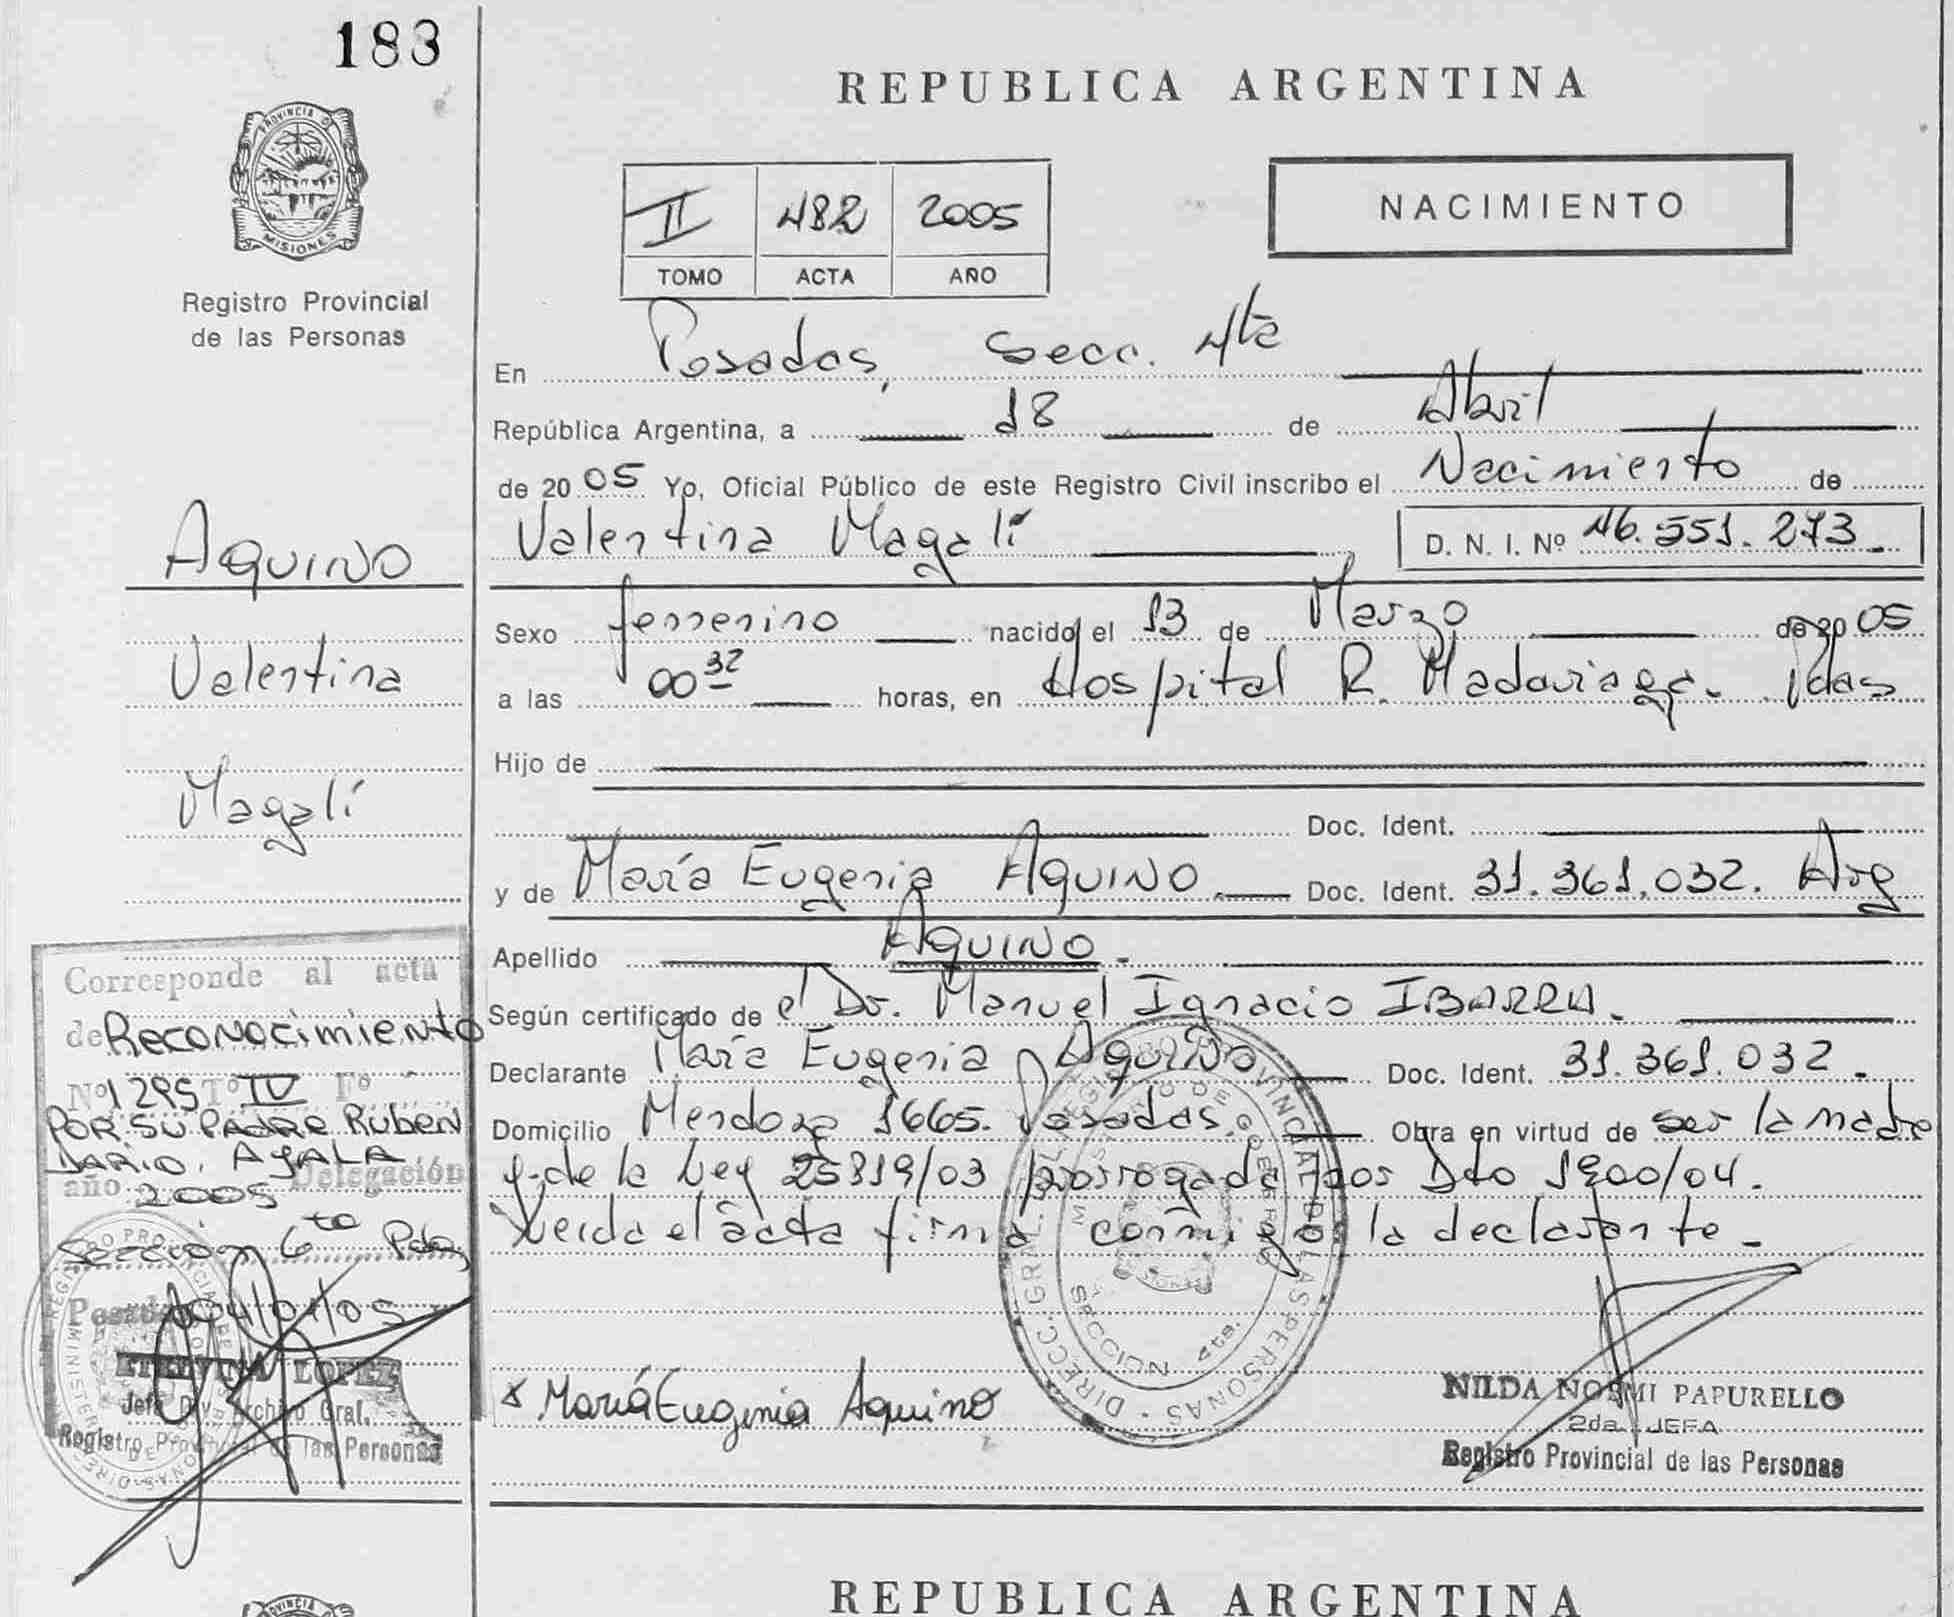 183
PROVINCIA DE
MISIONES
Registro Provincial
de las Personas
AQUINO
Valentina
Magalí
Corresponde al acta
de Reconocimiento
Nº 1295 Tº IV Fº -
POR SU PADRE RUBEN
DARIO. AYALA
año 2005 Delegación
Sección 6ta Pdas
Posadas
LOPEZ
Jefe Div. Archivo Gral.
Registro Provincial de las Personas
REPUBLICA ARGENTINA
II 482 2005
TOMO ACTA AÑO
NACIMIENTO
En Posadas, Secc. 4ta
República Argentina, a 18 de Abril
de 2005 Yo, Oficial Público de este Registro Civil inscribo el Nacimiento de
Valentina Magalí D. N. I. Nº 46.551.273
Sexo femenino nacido el 13 de Marzo de 2005
a las 00 32 horas, en Hospital R. Madariaga - Pdas
Hijo de
Doc. Ident.
y de María Eugenia AQUINO. Doc. Ident. 31.361.032. Arg
Apellido AQUINO.-
Según certificado de el Dr. Manuel Ignacio IBARRA.
Declarante María Eugenia AQUINO Doc. Ident. 31.361.032.
Domicilio Mendoza 1665. Posadas. Obra en virtud de ser la madre
y de la Ley 25819/03 prorrogada por Dto 1900/04.
Leida el acta firma conmigo la declarante -
SECCION 4ta.
x María Eugenia Aquino
NILDA NOEMI PAPURELLO
2da. JEFA
Registro Provincial de las Personas
REPUBLICA ARGENTINA